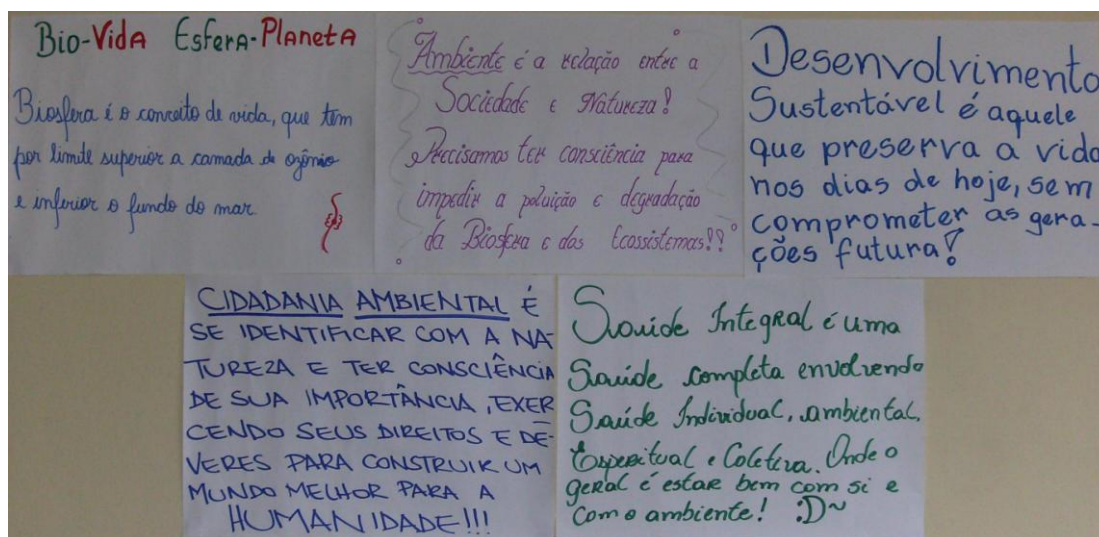 Bio-Vida Esfera-Planeta
Biosfera é o conceito de vida, que tem
por limite superior a camada de ozônio
e inferior o fundo do mar.
Ambiente é a relação entre a
Sociedade e Natureza!
Precisamos ter consciência para
impedir a poluição e degradação
da Biosfera e dos Ecossistemas!!
Desenvolvimento
Sustentável é aquele
que preserva a vida
nos dias de hoje, sem
comprometer as gera-
ções futura!
CIDADANIA AMBIENTAL É
SE IDENTIFICAR COM A NA-
TUREZA E TER CONSCIÊNCIA
DE SUA IMPORTÂNCIA, EXER
CENDO SEUS DIREITOS E DE-
VERES PARA CONSTRUIR UM
MUNDO MELHOR PARA A
HUMANIDADE!!!
Saúide Integral é uma
Saúide completa envolvendo
Saúide Individual, ambiental,
Esperitual e Coletiva. Onde o
geral é estar bem com si e
com o ambiente! :D~